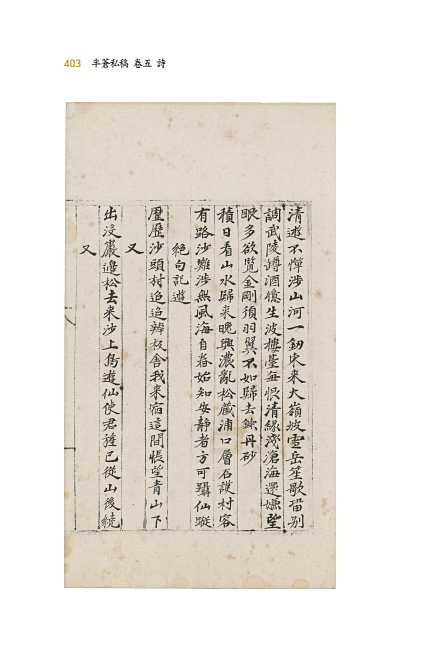 403 半蒼私稿 卷五 詩
清遊不憚涉山河一劒宋來大嶺坡雪岳笙歌留別
調武陵蹲酒憶生波樓臺無恨清緣淺滄海還嫌望
眼多欲覽金剛須羽翼不如歸去鍊丹砂
積日看山水歸來晚興濃亂松藏浦口層石護村容
有路沙難涉無風海自舂始知安靜者方可躡仙蹤
絶句記遊
歷歷沙頭村迢迢辨板舍我來宿這間悵望青山下
又
出沒巖邊松去來沙上鳥遊仙使君譴已從山後繞
又